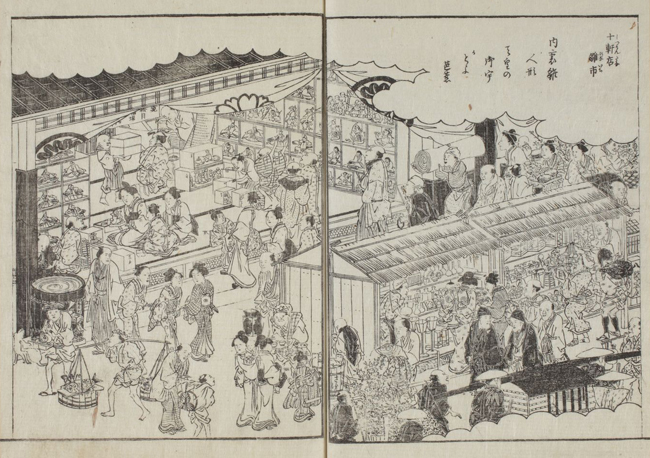 十軒店
雛市
内裏雛
人形
天皇の
御宇
とかや
芭蕉